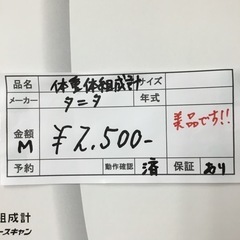 品名 体重体組成計 サイズ
メーカー タニタ 年式
金額 M ¥2,500- 美品です!!
予約 動作確認 済 保証 あり
組成計
ースキャン